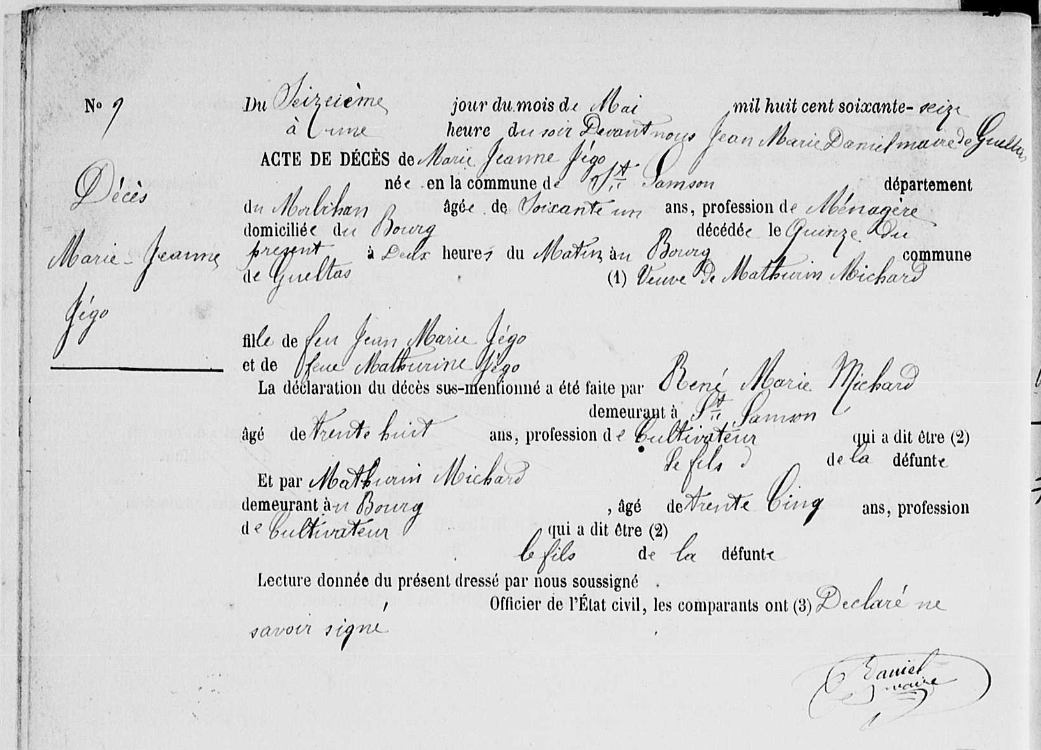 N° 9
Décès
Marie-Jeanne
Jégo
Du Seizeième jour du mois de Mai mil huit cent soixante-seize
à une heure du soir Devant nous Jean Marie Daniel maire de Gueltas
ACTE DE DÉCÈS de Marie Jeanne Jégo
née en la commune de St Samson département
du Morbihan âgée de Soixante un ans, profession de Ménagère
domiciliée du Bourg décédée le Quinze du
présent à Deux heures du Matin au Bourg commune
de Gueltas (1) Veuve de Mathurin Michard
fille de feu Jean Marie Jégo
et de feue Mathurine Jégo
La déclaration du décès sus-mentionné a été faite par René Marie Michard
demeurant à St Samson
âgé de trente huit ans, profession de Cultivateur qui a dit être (2)
le fils de la défunte
Et par Mathurin Michard
demeurant au Bourg , âgé de trente Cinq ans, profession
de Cultivateur qui a dit être (2)
le fils de la défunte
Lecture donnée du présent dressé par nous soussigné
Officier de l'État civil, les comparants ont (3) Declaré ne
savoir signé
Daniel
maire